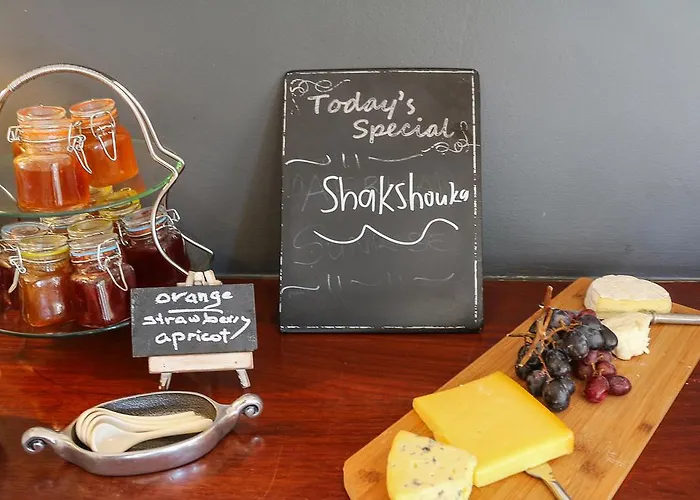 Today's
Special
Shakshouka
orange
strawberry
apricot